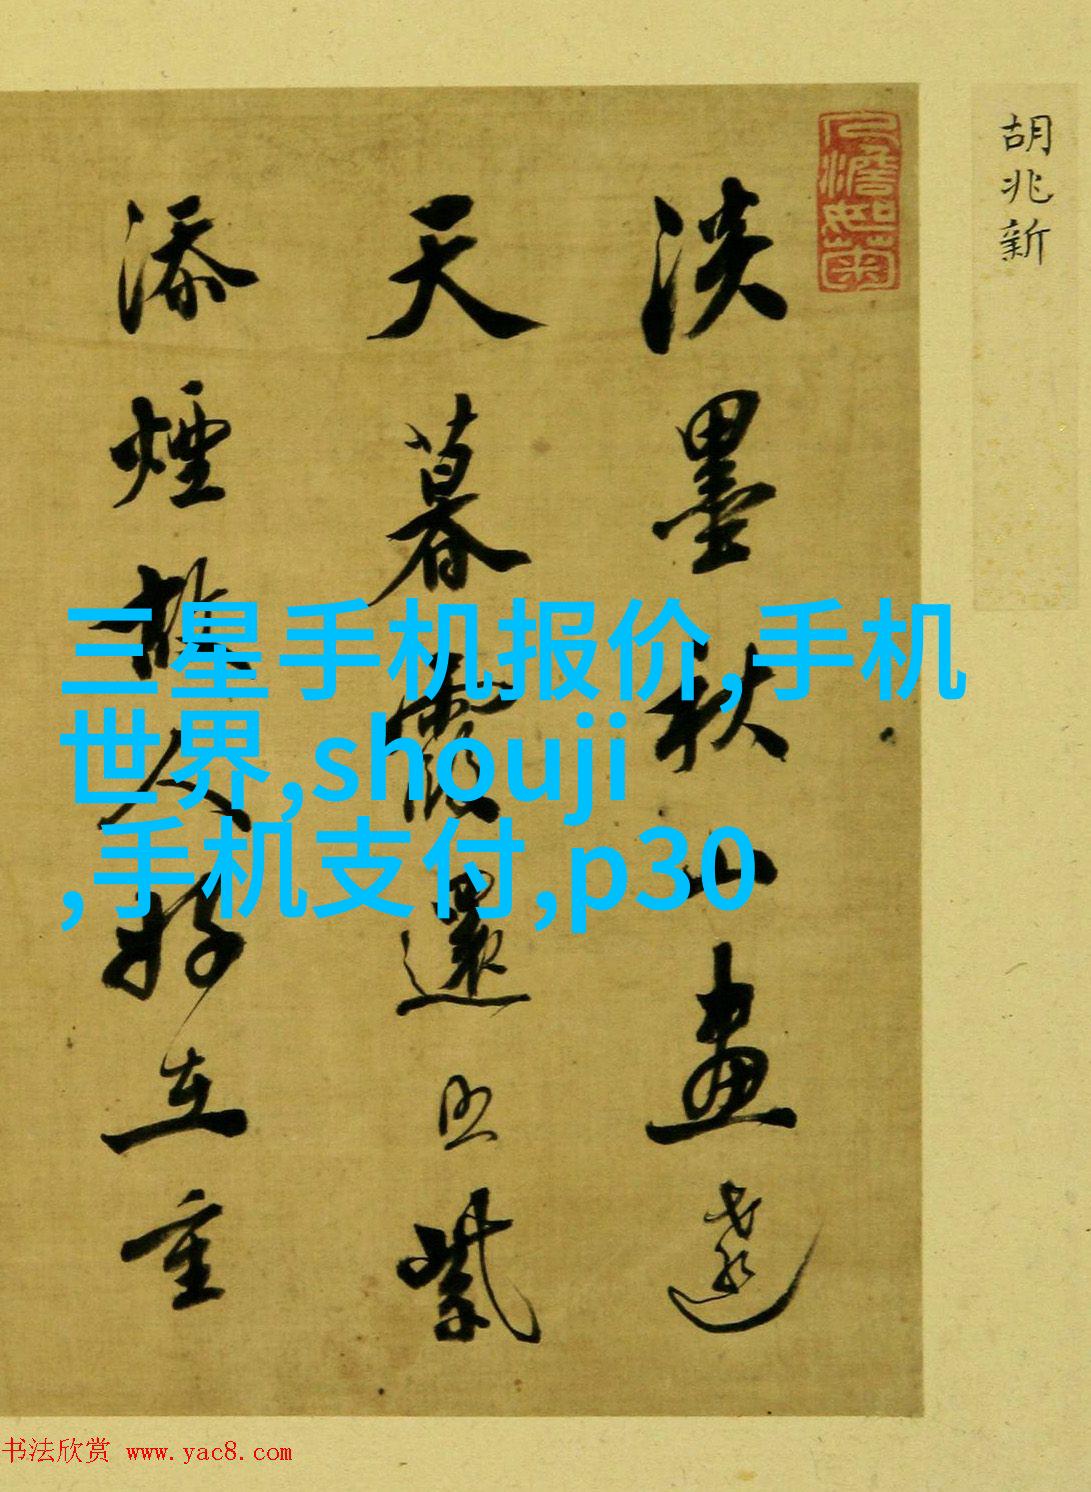 胡兆新
淡墨秋山畫遠
天暮霞還照紫
添煙故人好在重
三星手机报价,手机
世界,shouji
,手机支付,p30
书法欣赏 www.yac8.com